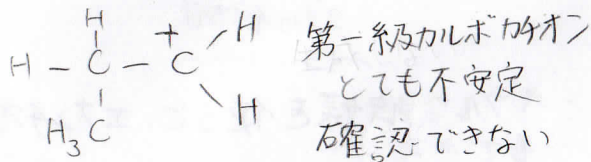 H
H - C - C + H
H
H₃C
第一級カルボカチオン
とても不安定
確認できない